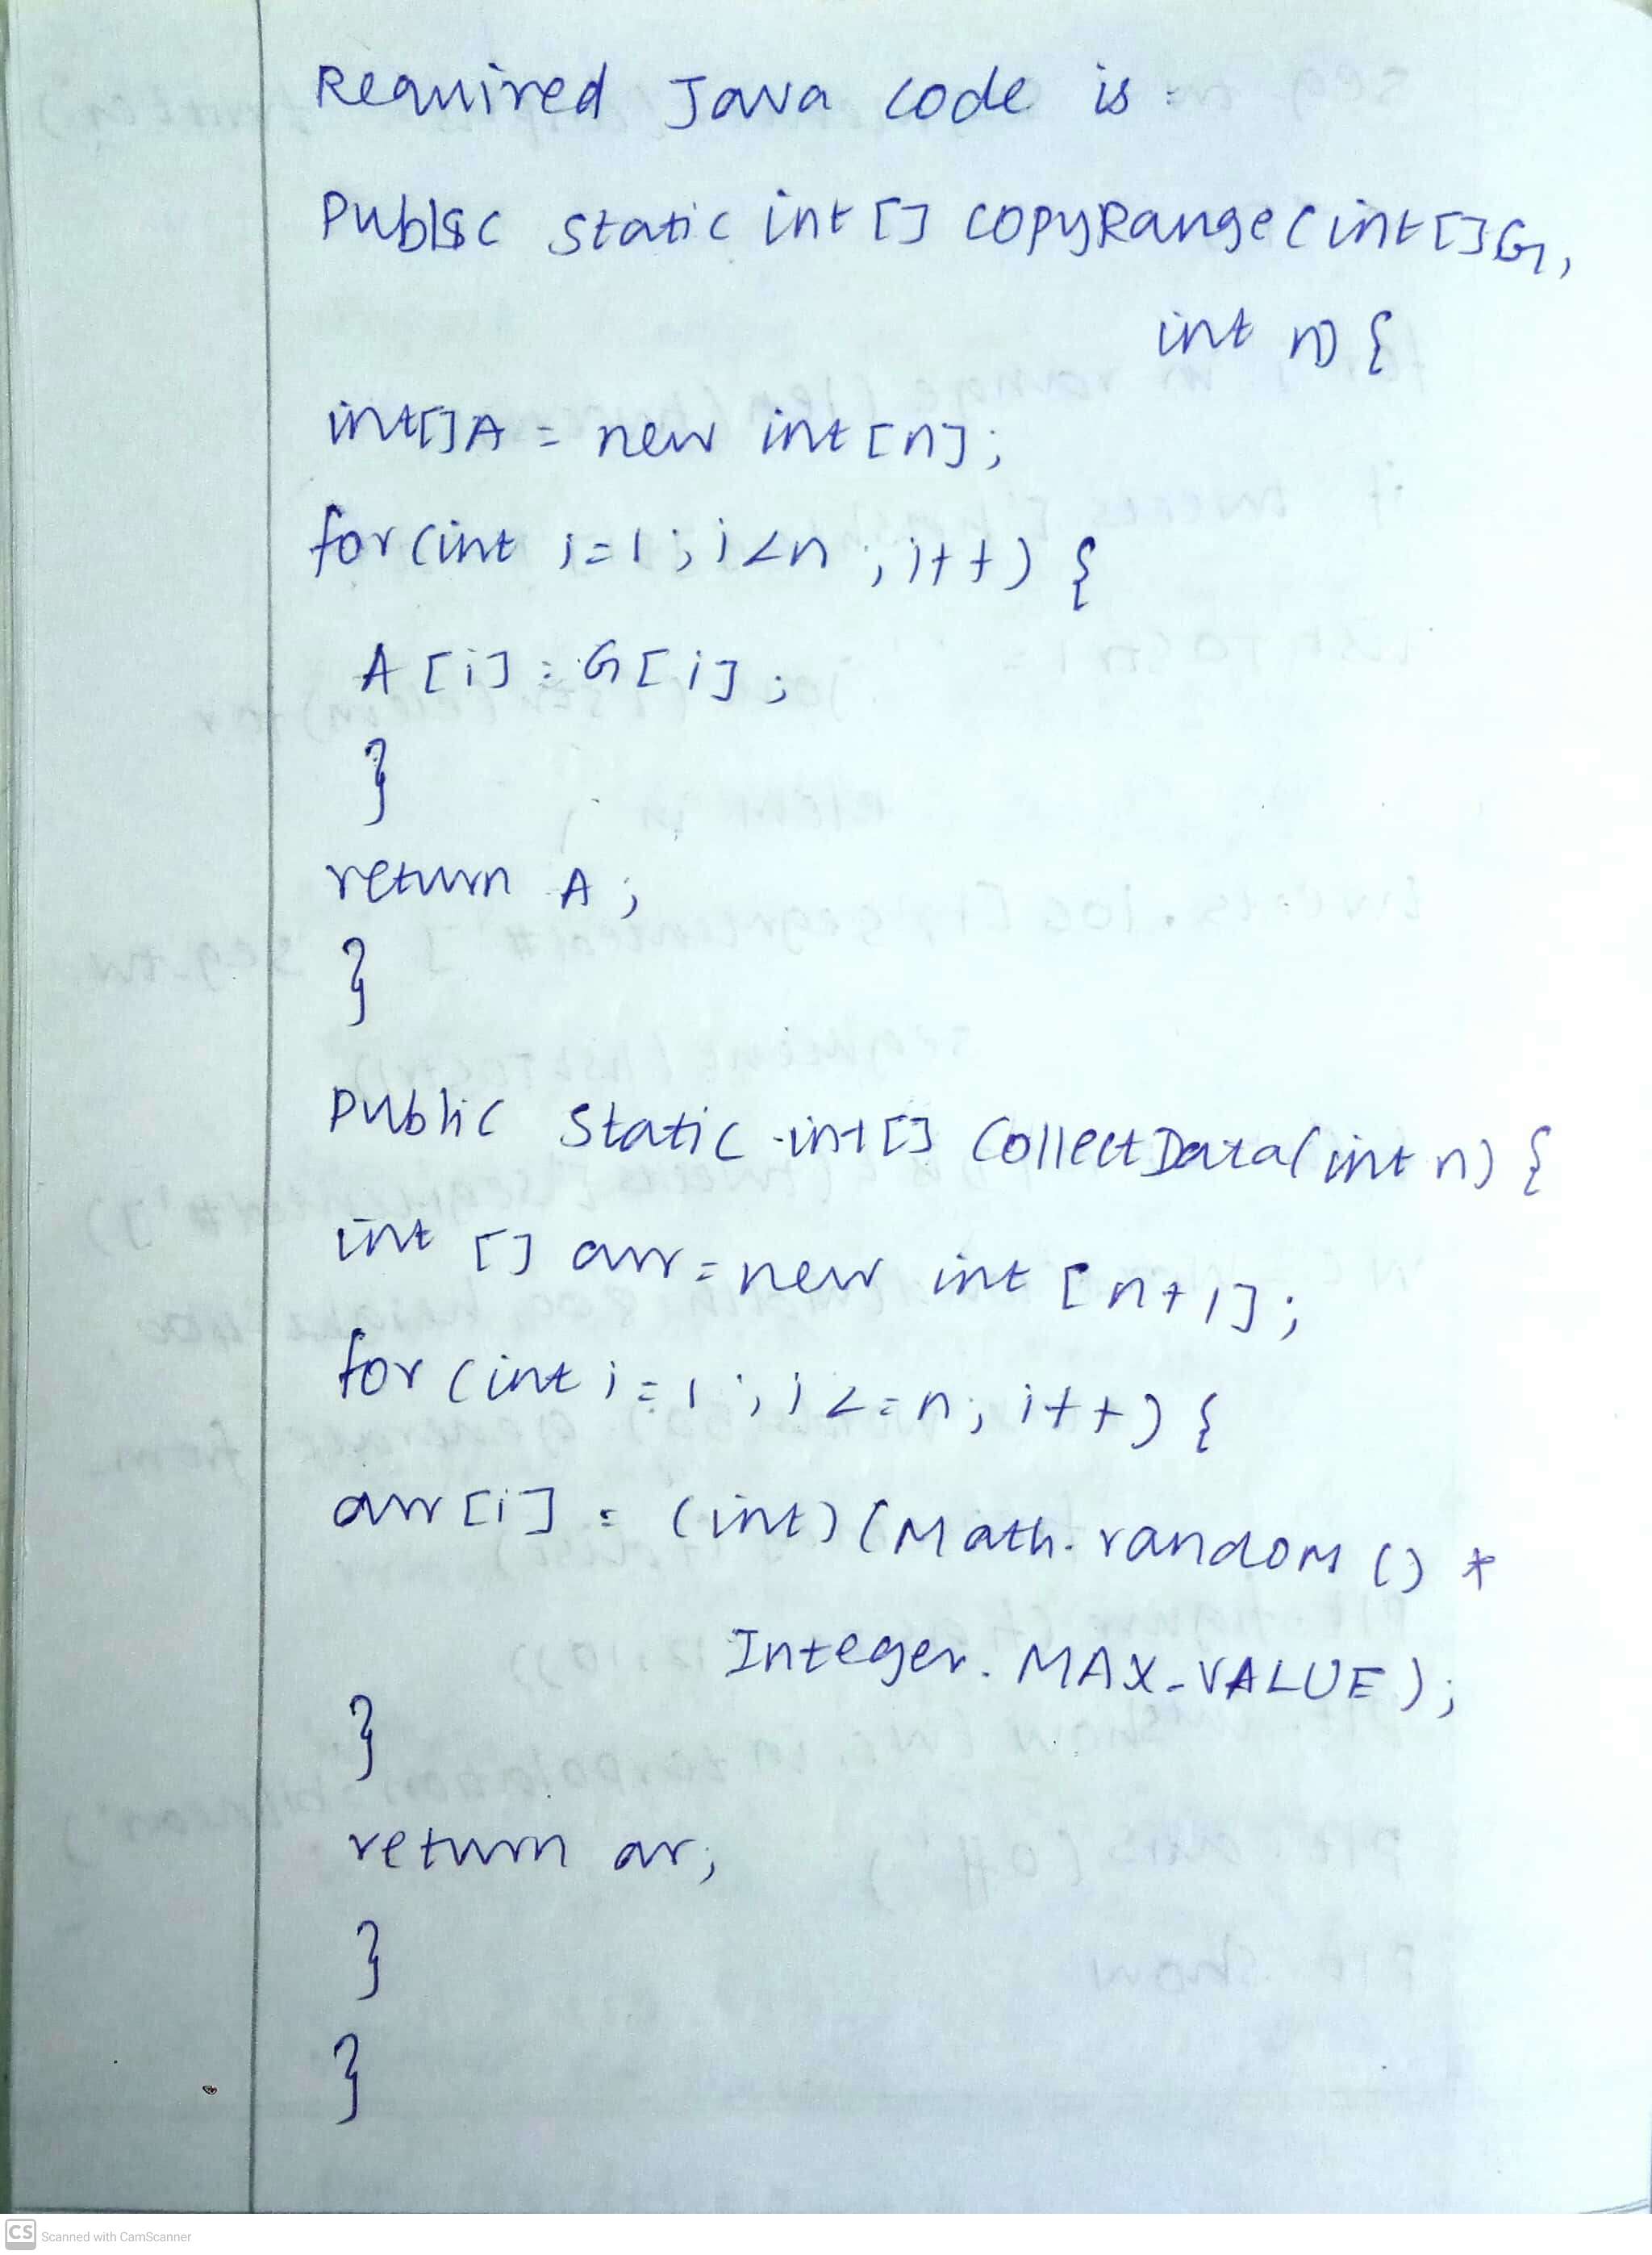 Required Java code is :
Public static int [] copyRange (int []G,
int n) {
int[]A = new int [n];
for (int i=1; i<n ; i++) {
A [i] = G[i];
}
return A;
}
Public Static int[] CollectData(int n) {
int [] arr = new int [n+1];
for (int i=1; i<=n; i++) {
arr [i] = (int) (Math. random () *
Integer. MAX_VALUE );
}
return ar;
}
}
CS Scanned with CamScanner